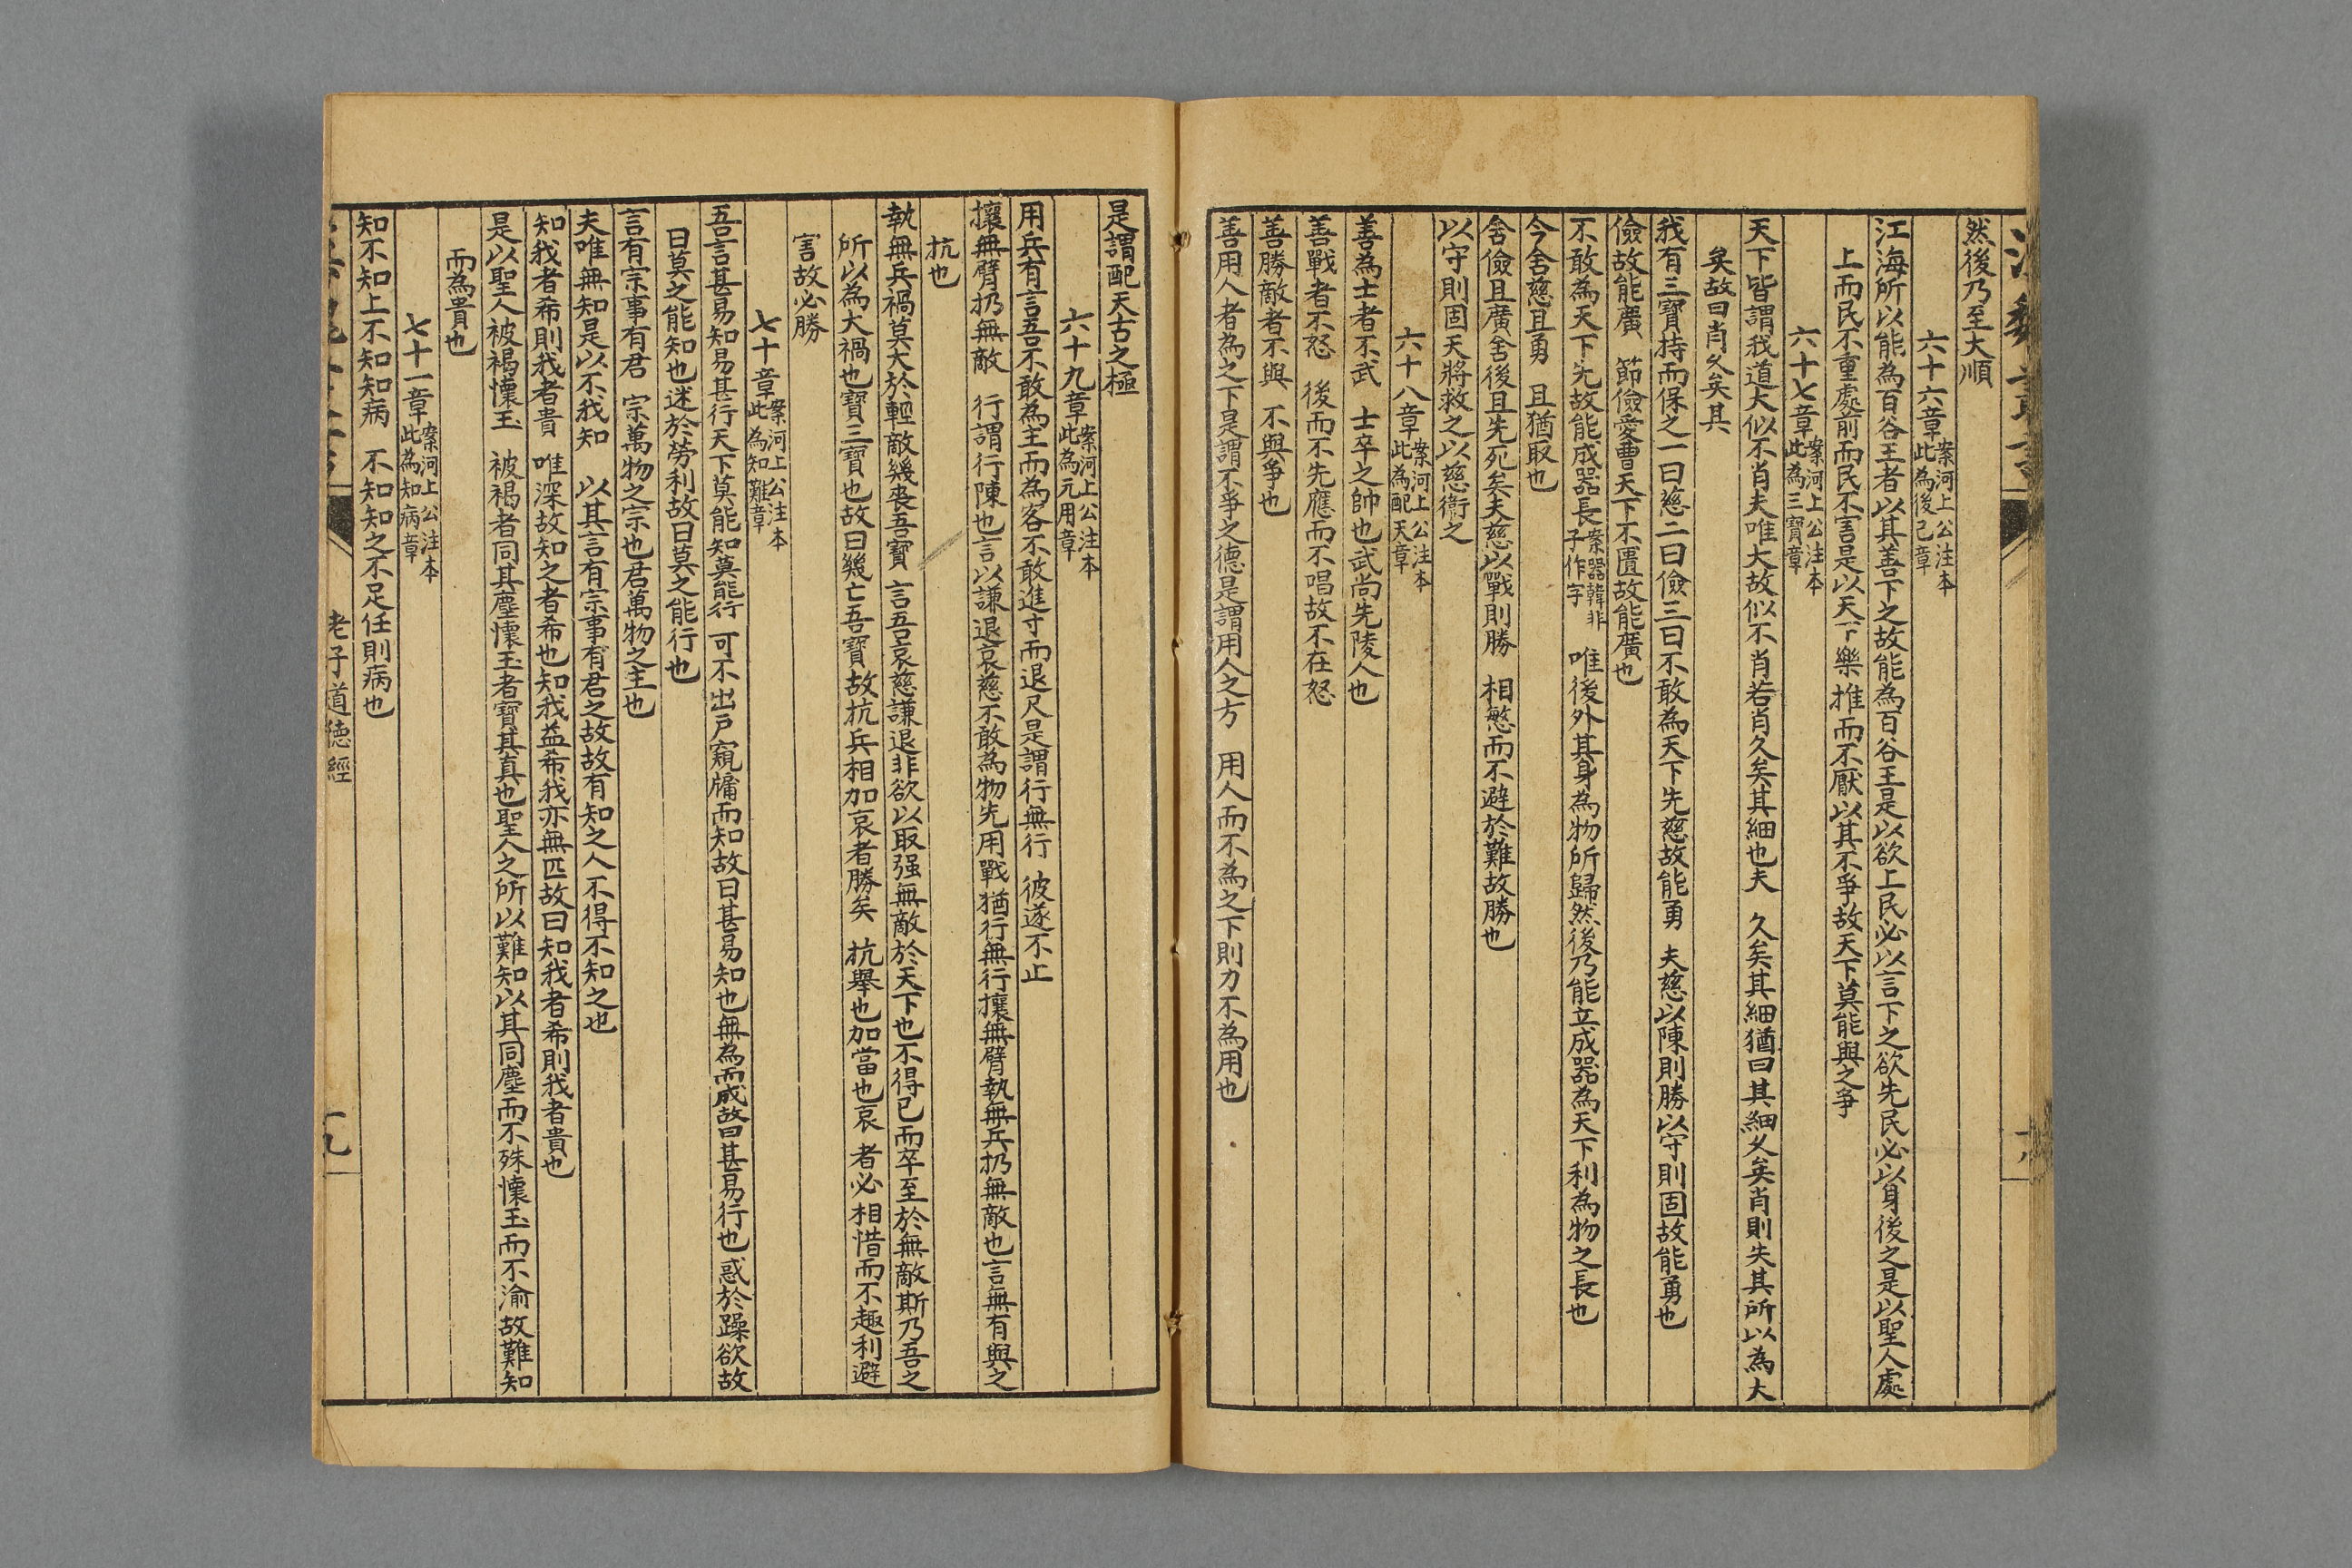 然後乃至大順
六十六章案河上公注本此為後己章
江海所以能為百谷王者以其善下之故能為百谷王是以欲上民必以言下之欲先民必以身後之是以聖人處
上而民不重處前而民不害是以天下樂推而不厭以其不爭故天下莫能與之爭
六十七章案河上公注本此為三寶章
天下皆謂我道大似不肖夫唯大故似不肖若肖久矣其細也夫 久矣其細猶曰其細久矣肖則失其所以為大
矣故曰肖久矣其
我有三寶持而保之一曰慈二曰儉三曰不敢為天下先慈故能勇 夫慈以陳則勝以守則固故能勇也
儉故能廣 節儉愛費天下不匱故能廣也
不敢為天下先故能成器長案器韓非子作字 唯後外其身為物所歸然後乃能立成器為天下利為物之長也
今舍慈且勇 且猶取也
舍儉且廣舍後且先死矣夫慈以戰則勝 相慜而不避於難故勝也
以守則固天將救之以慈衛之
六十八章案河上公注本此為配天章
善為士者不武 士卒之帥也武尚先陵人也
善戰者不怒 後而不先應而不唱故不在怒
善勝敵者不與 不與爭也
善用人者為之下是謂不爭之德是謂用人之方 用人而不為之下則力不為用也
是謂配天古之極
六十九章案河上公注本此為元用章
用兵有言吾不敢為主而為客不敢進寸而退尺是謂行無行 彼遂不止
攘無臂扔無敵 行謂行陳也言以謙退哀慈不敢為物先用戰猶行無行攘無臂執無兵扔無敵也言無有與之
抗也
執無兵禍莫大於輕敵幾喪吾寶 言吾哀慈謙退非欲以取强無敵於天下也不得已而卒至於無敵斯乃吾之
所以為大禍也寶三寶也故曰幾亡吾寶故抗兵相加哀者勝矣 抗舉也加當也哀者必相惜而不趣利避
害故必勝
七十章案河上公注本此為知難章
吾言甚易知易甚行天下莫能知莫能行 可不出戶窺牖而知故曰甚易知也無為而成故曰甚易行也惑於躁欲故
曰莫之能知也迷於勞利故曰莫之能行也
言有宗事有君 宗萬物之宗也君萬物之主也
夫唯無知是以不我知 以其言有宗事有君之故故有知之人不得不知之也
知我者希則我者貴 唯深故知之者希也知我益希我亦無匹故曰知我者希則我者貴也
是以聖人被褐懷玉 被褐者同其塵懷玉者寶其真也聖人之所以難知以其同塵而不殊懷玉而不渝故難知
而為貴也
七十一章案河上公注本此為知病章
知不知上不知知病 不知知之不足任則病也
老子道德經